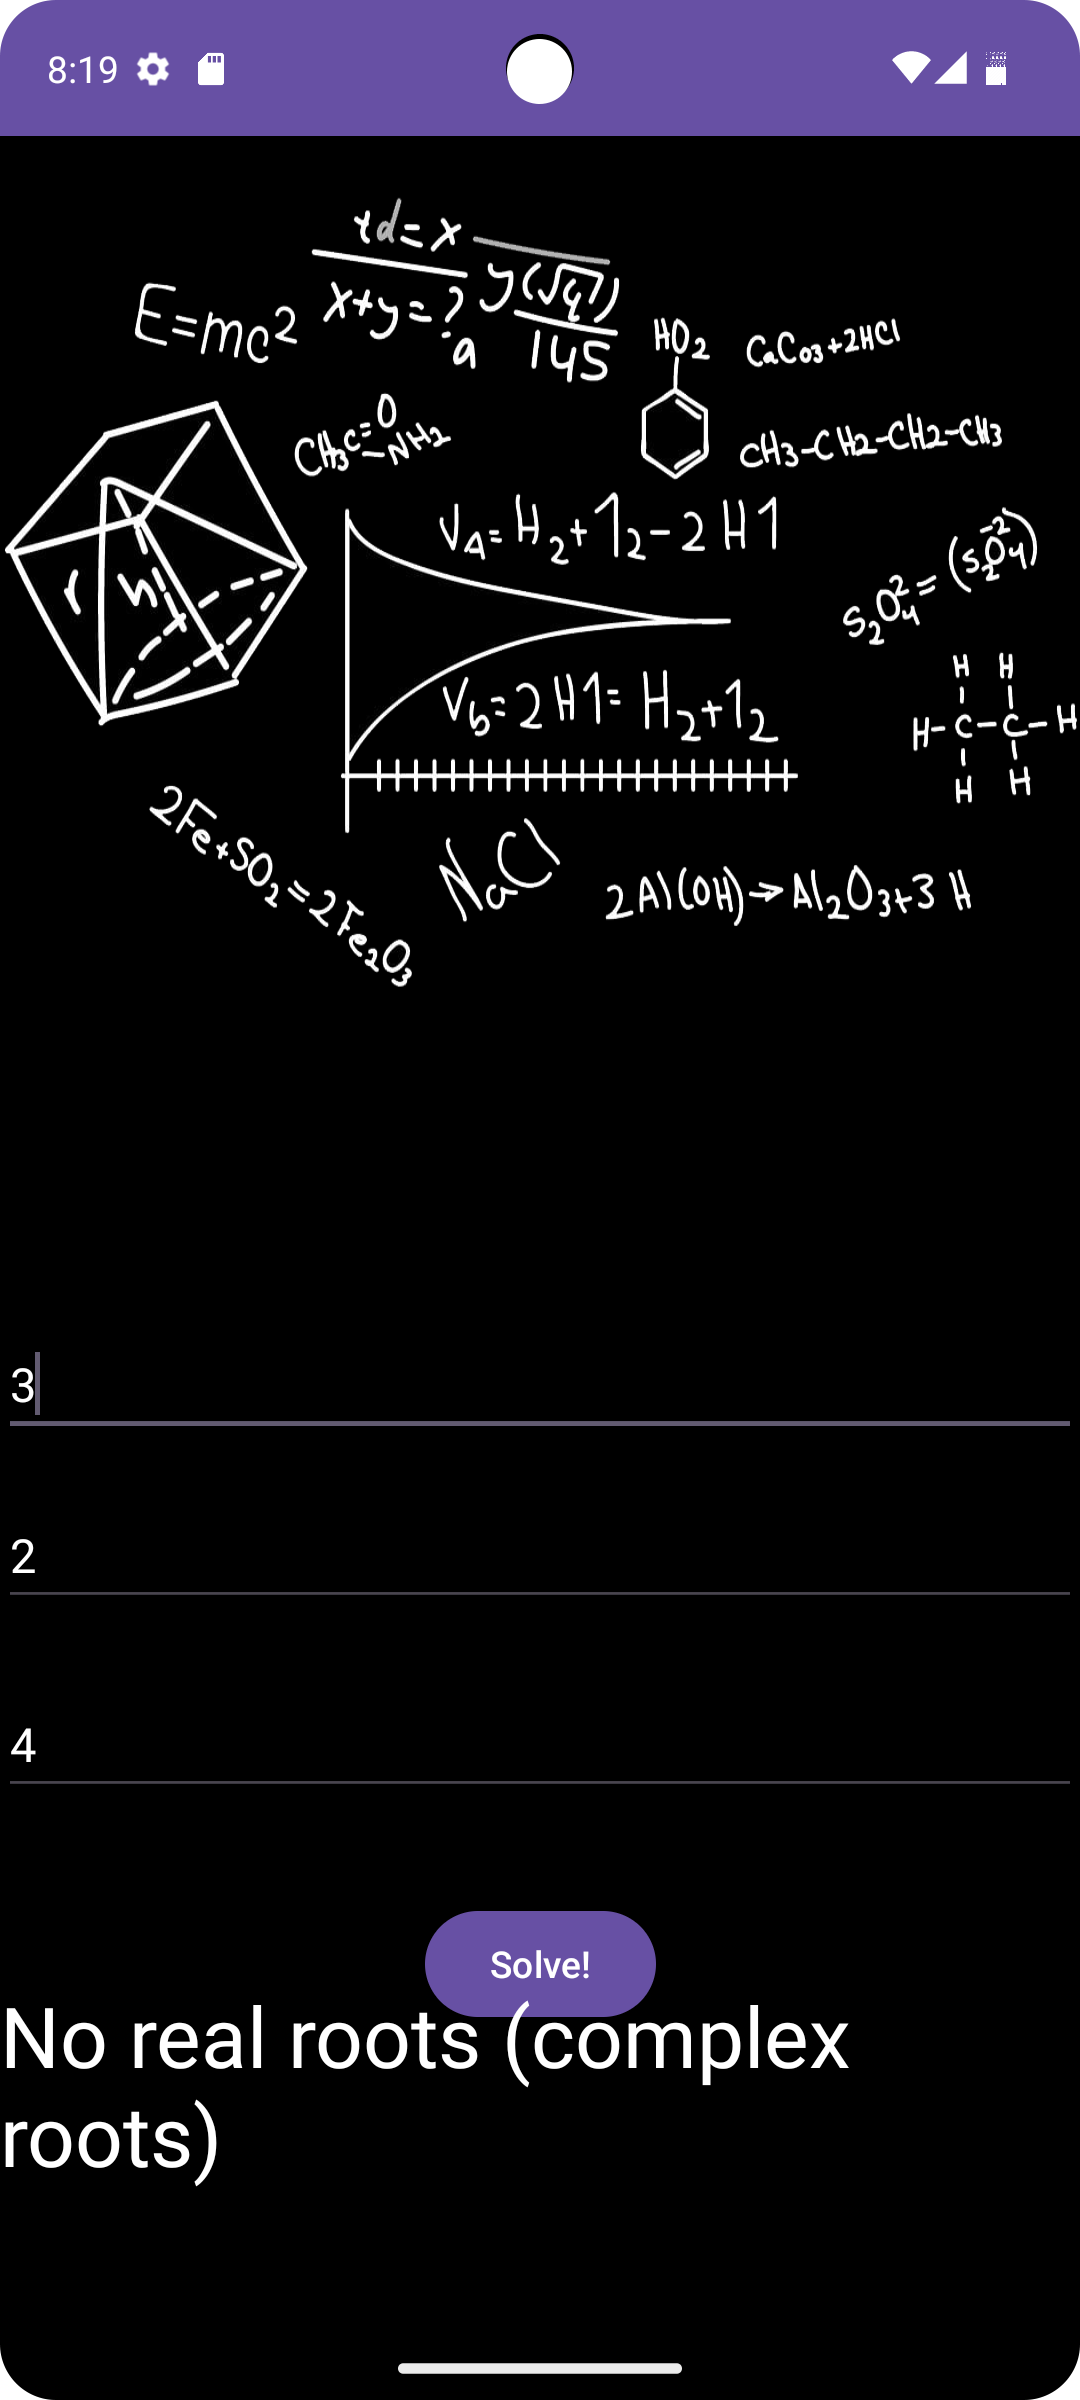 8:19
td=x
E=mc2
x+y=?
a
y(√47)
145
HO2
CaCO3+2HCl
CH3C=O
-NH2
CH3-CH2-CH2-CH3
VA=H2+12-2H1
S2O4²=(S2O4-2)
r h
Vb=2H1=H2+12
H H
H-C-C-H
H H
2Fe+SO2=2Fe2O3
NaCl
2Al(OH)→Al2O3+3 H
3
2
4
Solve!
No real roots (complex
roots)